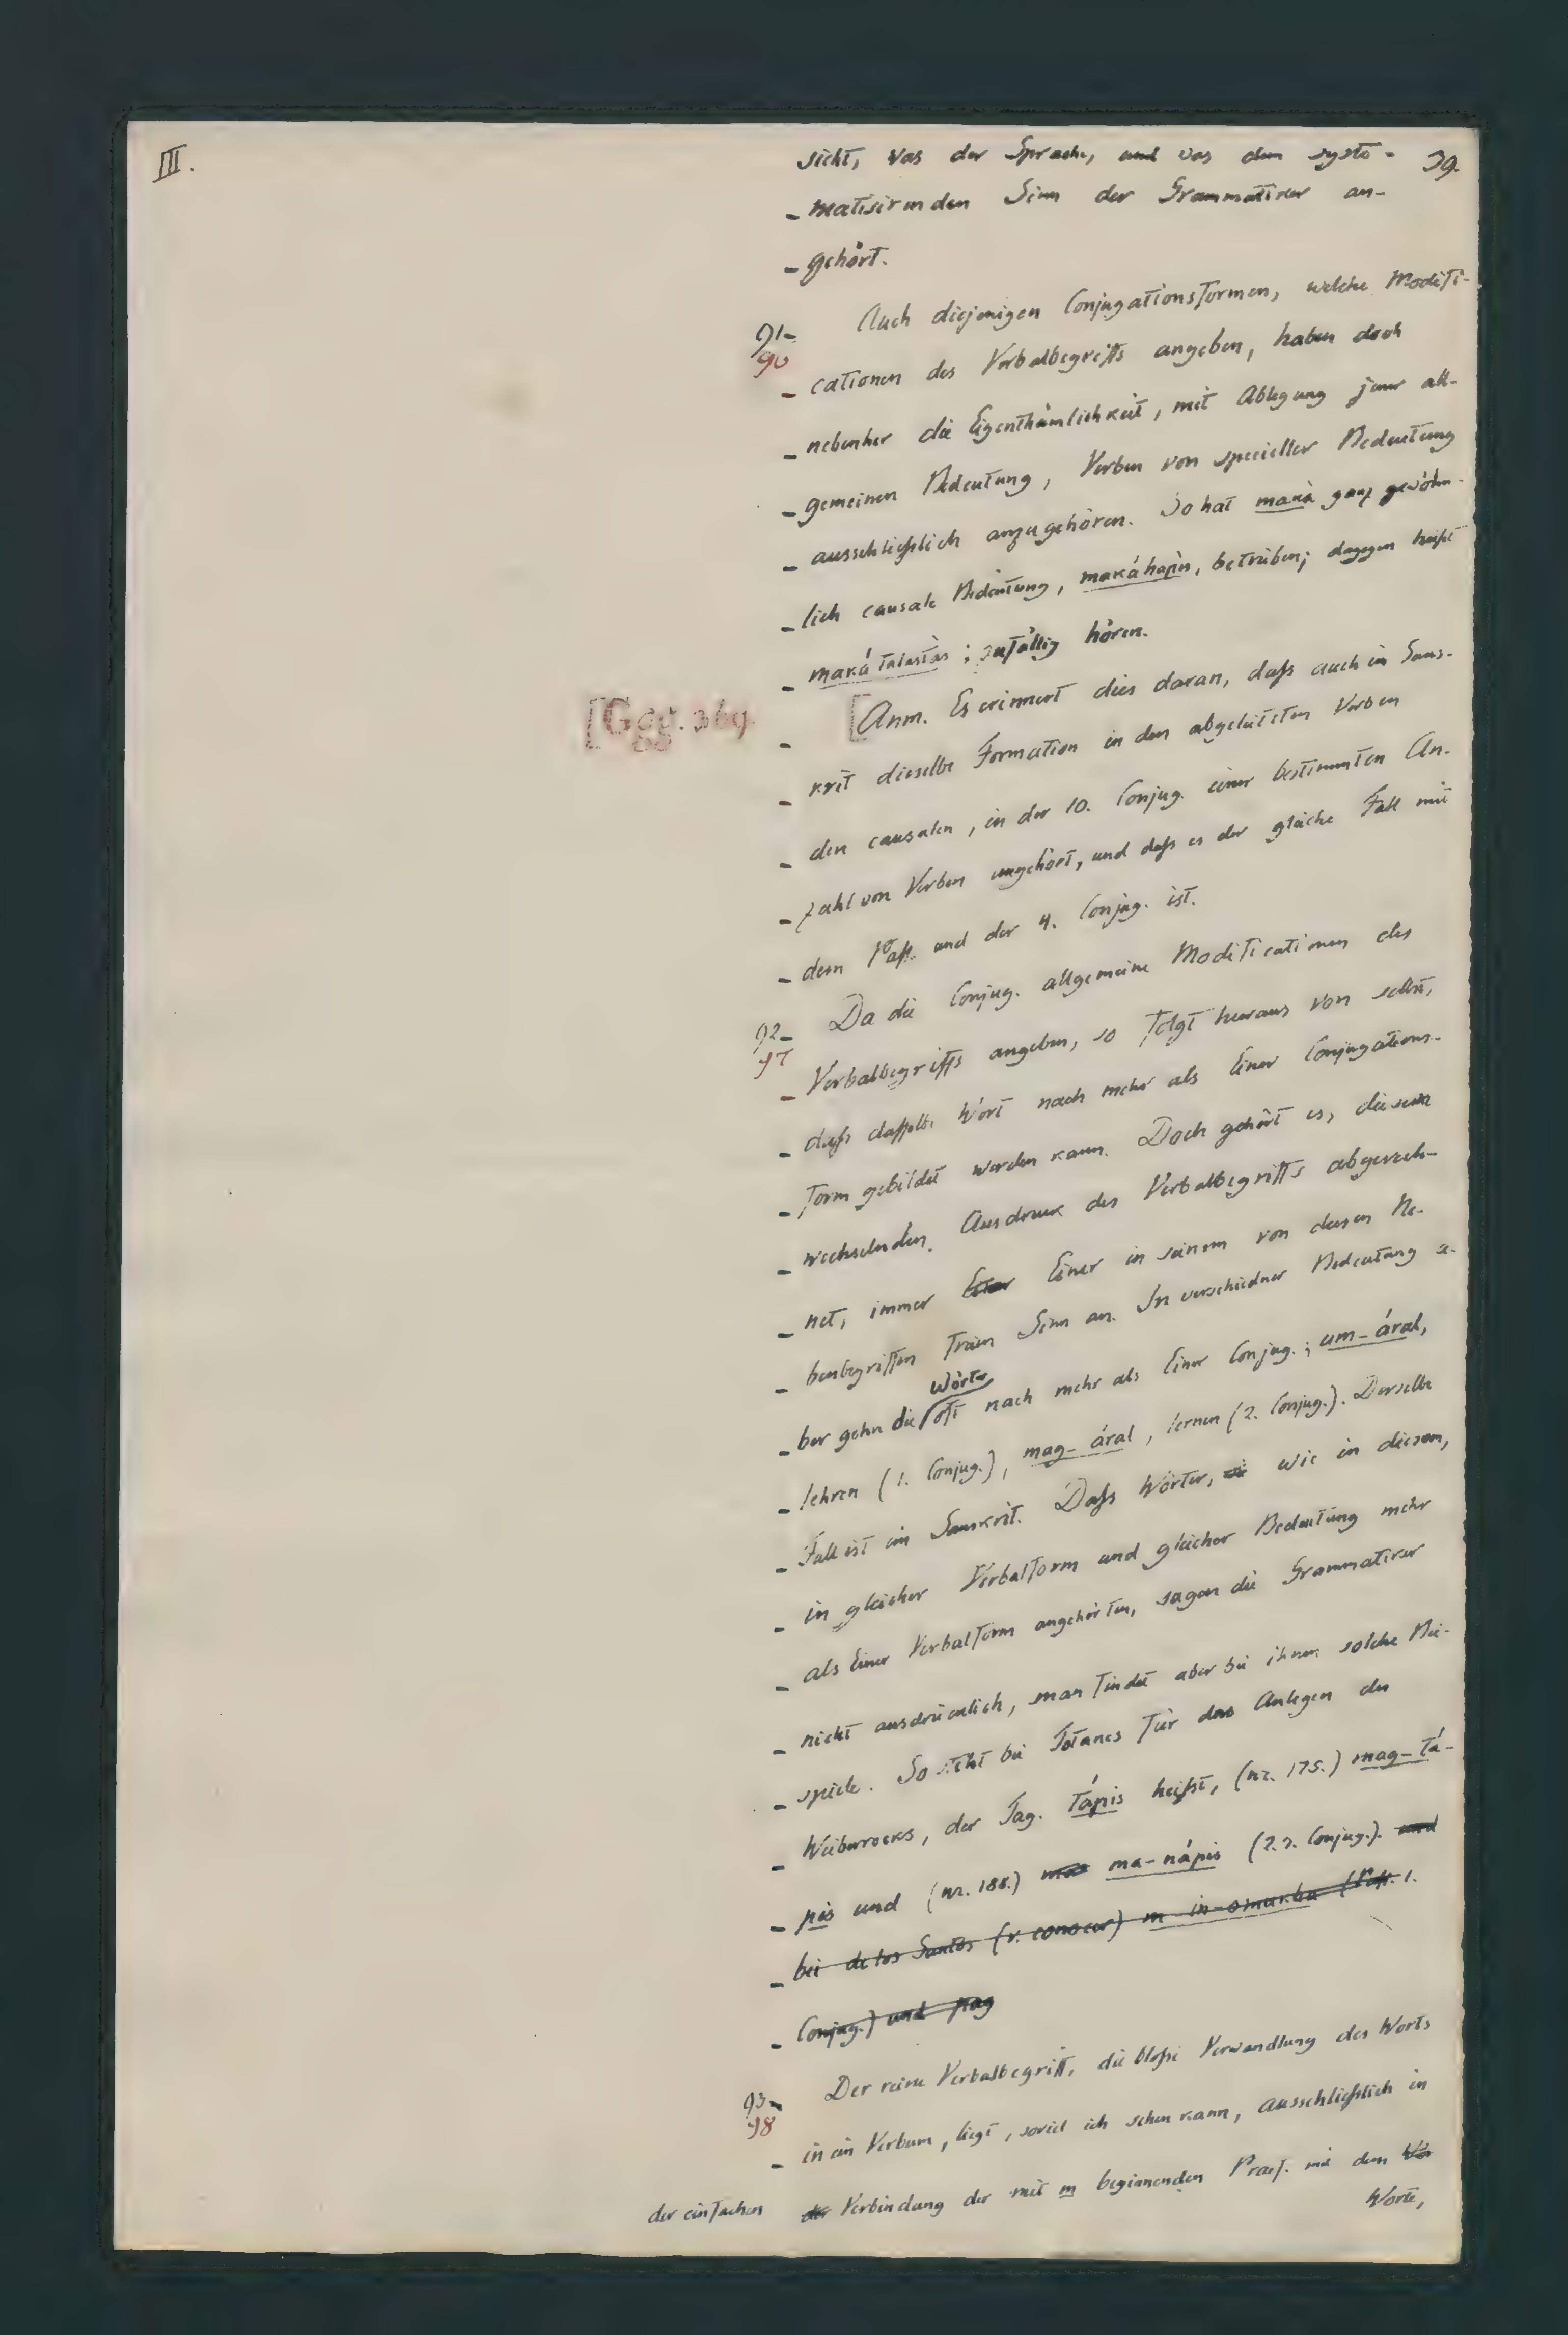 III.
39.
sicht, was der Sprache, und was dem syste-
matisirenden Sinn der Grammatiker an-
gehört.
91-
90
Auch diejenigen Conjugationsformen, welche Modifi-
cationen des Verbalbegriffs angeben, haben doch
nebenher die Eigenthümlichkeit, mit Ablegung jener all-
gemeinen Bedeutung, Verben von specieller Bedeutung
ausschließlich anzugehören. So hat maká ganz gewöhn-
lich causale Bedeutung, makáhapis, betrüben; dagegen heißt
maká talastàs; zufällig hören.
[Ggg. 369.
[Anm. Es erinnert dies daran, daß auch im Sans-
krit dieselbe Formation in den abgeleiteten Verben
den causalen, in der 10. Conjug. einer bestimmten An-
zahl von Verben angehört, und daß es der gleiche Fall mit
dem Paß. und der 4. Conjug. ist.
92-
97
Da die Conjug. allgemeine Modificationen des
Verbalbegriffs angeben, so folgt hieraus von selbst,
daß daßelbe Wort nach mehr als Einer Conjugations-
form gebildet werden kann. Doch gehört es, diesem
wechselnden Ausdruck des Verbalbegriffs abgerech-
net, immer Einer in seinem von diesen Ne-
benbegriffen freien Sinn an. In verschiedner Bedeutung ü-
ber gehn die Wörter oft nach mehr als Einer Conjug.; um-áral,
lehren (1. Conjug.), mag-áral, lernen (2. Conjug.). Derselbe
Fall ist im Sanskrit. Daß Wörter, wie in diesem,
in gleicher Verbalform und gleicher Bedeutung mehr
als Einer Verbalform angehörten, sagen die Grammatiker
nicht ausdrücklich, man findet aber bei ihnen solche Bei-
spiele. So steht bei Totanes für das Anlegen des
Weiberrocks, der Tag. tápis heißt, (nr. 175.) mag-tá-
pis und (nr. 188.) ma-nápis (2. 3. Conjug.). und
bei de los Santos (v. conocer) m-in-omukha (Paß. 1.
Conjug.) und pag
93-
98
Der reine Verbalbegriff, die bloße Verwandlung des Worts
in ein Verbum, liegt, soviel ich sehen kann, ausschließlich in
der einfachen der Verbindung der mit m beginnenden Praef. mit dem
Worte,